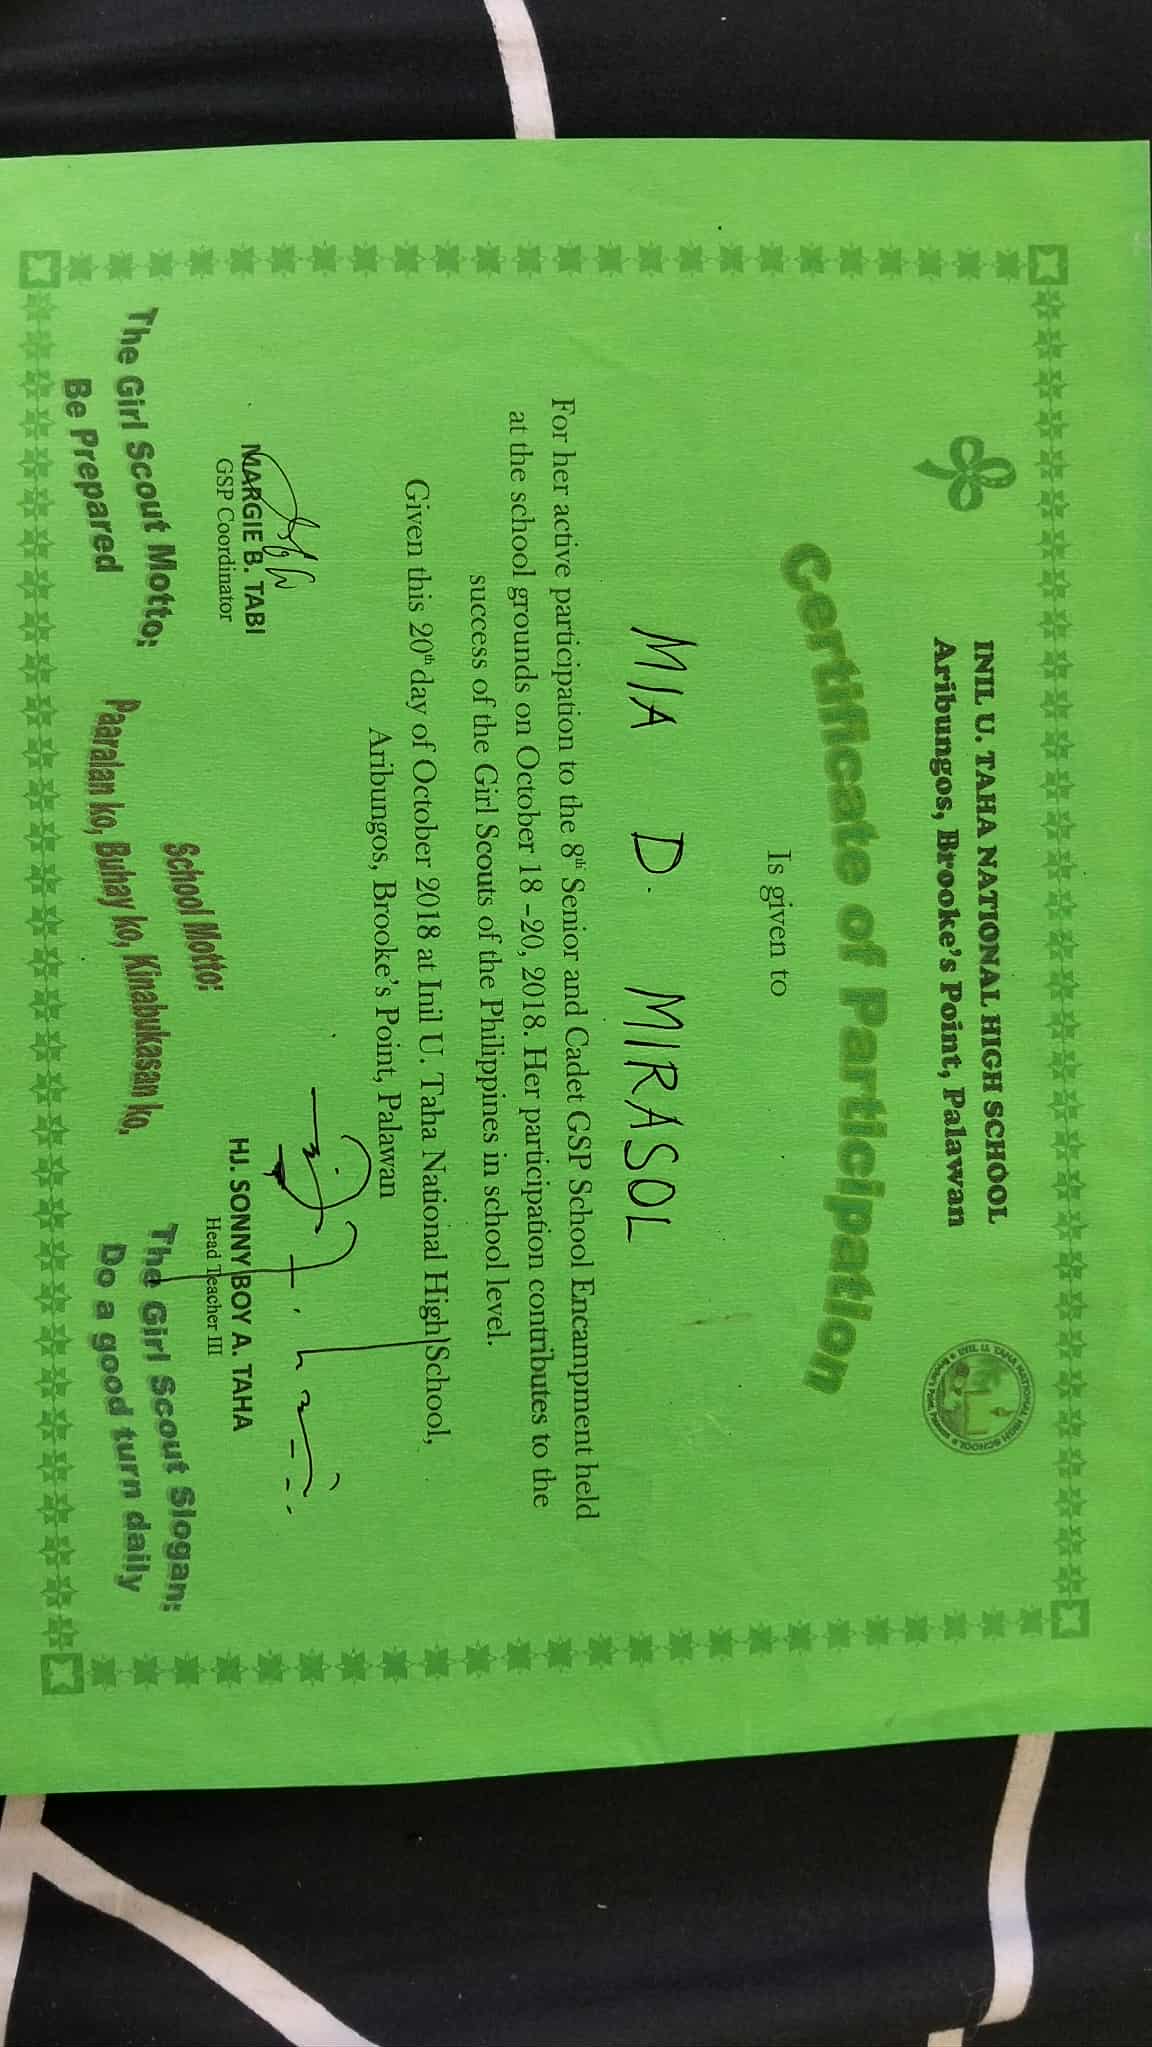 INIL U. TAHA NATIONAL HIGH SCHOOL
Aribungos, Brooke's Point, Palawan
INIL U. TAHA NATIONAL HIGH SCHOOL
Brooke's Point, Palawan
Certificate of Participation
Is given to
MIA D. MIRASOL
For her active participation to the 8th Senior and Cadet GSP School Encampment held
at the school grounds on October 18 –20, 2018. Her participation contributes to the
success of the Girl Scouts of the Philippines in school level.
Given this 20th day of October 2018 at Inil U. Taha National High School,
Aribungos, Brooke's Point, Palawan
MARGIE B. TABI
GSP Coordinator
HJ. SONNY BOY A. TAHA
Head Teacher III
The Girl Scout Motto:
Be Prepared
School Motto:
Paaralan ko, Buhay ko, Kinabukasan ko.
The Girl Scout Slogan:
Do a good turn daily